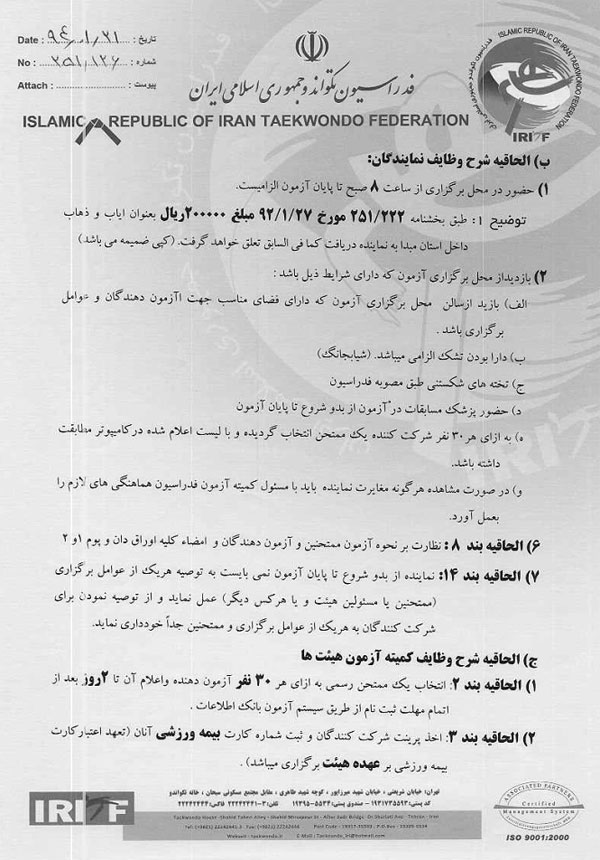 Date : ۹۴/۰۱/۳۱ تاریخ :
No : ۲۵۱/۱۲۶ شماره :
Attach : پیوست :
فدراسیون تکواندو جمهوری اسلامی ایران
ISLAMIC REPUBLIC OF IRAN TAEKWONDO FEDERATION
ISLAMIC REPUBLIC OF IRAN TAEKWONDO FEDERATION
IRITF
ب) الحاقیه شرح وظایف نمایندگان:
۱) حضور در محل برگزاری از ساعت ۸ صبح تا پایان آزمون الزامیست.
توضیح ۱: طبق بخشنامه ۲۵۱/۲۲۲ مورخ ۹۲/۱/۲۷ مبلغ ۲۰۰۰۰۰ریال بعنوان ایاب و ذهاب
داخل استان مبدا به نماینده دریافت کما فی السابق تعلق خواهد گرفت. (کپی ضمیمه می باشد)
۲) بازدیداز محل برگزاری آزمون که دارای شرایط ذیل باشد :
الف) بازید ازسالن محل برگزاری آزمون که دارای فضای مناسب جهت اآزمون دهندگان و عوامل
برگزاری باشد .
ب) دارا بودن تشک الزامی میباشد. (شیابجانگ)
ج) تخته های شکستنی طبق مصوبه فدراسیون
د) حضور پزشک مسابقات در آزمون از بدو شروع تا پایان آزمون
ه) به ازای هر ۳۰ نفر شرکت کننده یک ممتحن انتخاب گردیده و با لیست اعلام شده درکامپیوتر مطابقت
داشته باشد.
و) در صورت مشاهده هرگونه مغایرت نماینده باید با مسئول کمیته آزمون فدراسیون هماهنگی های لازم را
بعمل آورد.
۶) الحاقیه بند ۸ : نظارت بر نحوه آزمون ممتحنین و آزمون دهندگان و امضاء کلیه اوراق دان و پوم ۱و ۲
۷) الحاقیه بند ۱۴: نماینده از بدو شروع تا پایان آزمون نمی بایست به توصیه هریک از عوامل برگزاری
(ممتحنین یا مسئولین هیئت و یا هرکس دیگر) عمل نماید و از توصیه نمودن برای
شرکت کنندگان به هریک از عوامل برگزاری و ممتحنین جداً خودداری نماید.
ج) الحاقیه شرح وظایف کمیته آزمون هیئت ها
۱) الحاقیه بند ۲: انتخاب یک ممتحن رسمی به ازای هر ۳۰ نفر آزمون دهنده واعلام آن تا ۲روز بعد از
اتمام مهلت ثبت نام از طریق سیستم آزمون بانک اطلاعات .
۲) الحاقیه بند ۳: اخذ پرینت شرکت کنندگان و ثبت شماره کارت بیمه ورزشی آنان (تعهد اعتبارکارت
بیمه ورزشی بر عهده هیئت برگزاری میباشد) .
IRITF
تهران: خیابان شریعتی ، خیابان شهید میرزاپور ، کوچه شهید طاهری ، مقابل مجتمع مسکونی سبحان ، خانه تکواندو
کد پستی: ۱۹۳۱۷۳۵۵۹۳ - صندوق پستی: ۵۵۳۴-۱۹۳۹۵ تلفن: ۳-۲۲۲۴۲۴۴۱ فاکس: ۲۲۲۴۲۴۴۴
ASSOCIATED PARTNERS
Certified
Management System
ISO 9001:2000